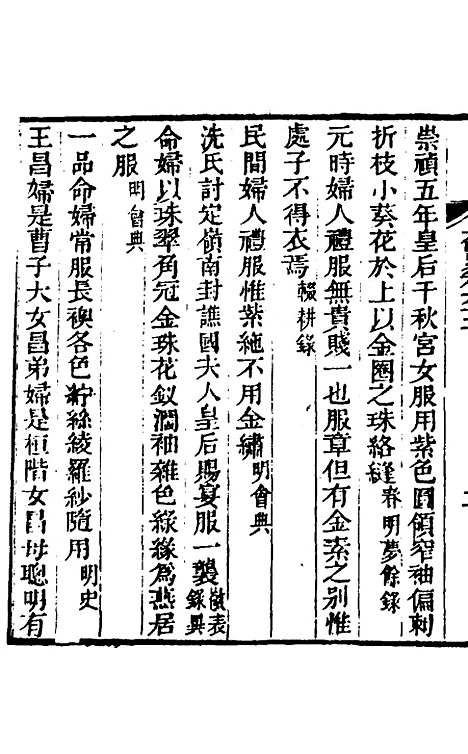 崇禎五年皇后千秋宮女服用紫色圓領窄袖偏刺
折枝小葵花於上以金圈之珠絡縫春明夢餘錄
元時婦人禮服無貴賤一也服章但有金素之別惟
處子不得衣焉輟耕錄
民間婦人禮服惟紫絁不用金繡明會典
洗氏討定嶺南封譙國夫人皇后賜宴服一襲表異錄
命婦以珠翠角冠金珠花釵濶袖雜色綠緣為燕居
之服明會典
一品命婦常服長襖各色紵絲綾羅紗隨用明史
王昌婦是曹子大女昌弟婦是桓階女昌母聰明有